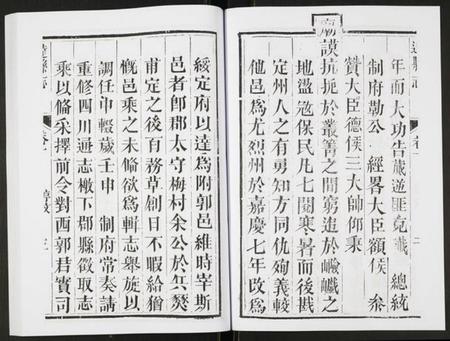 年而大功告蕆逆匪竟殱 總統
制府勒公 經畧大臣額侯 叅
贊大臣德侯三大帥仰乘
廟謨抗扼於叢菁之間窮追於巉巘之
地盪寇保民凡七閱寒暑而後戡
定州人之有勇知方同仇殉義較
他邑爲尤烈州於嘉慶七年改爲
綏定府以達爲附郭邑維時宰斯
邑者郎郡太守梅村余公於兵燹
甫定之後百務草創日不暇給猶
慨邑乘之未脩欲爲輯志舉旋以
調任中輟歲壬申 制府常奏請
重修四川通志檄下郡縣徵取志
乘以脩采擇前令對西郭君實司